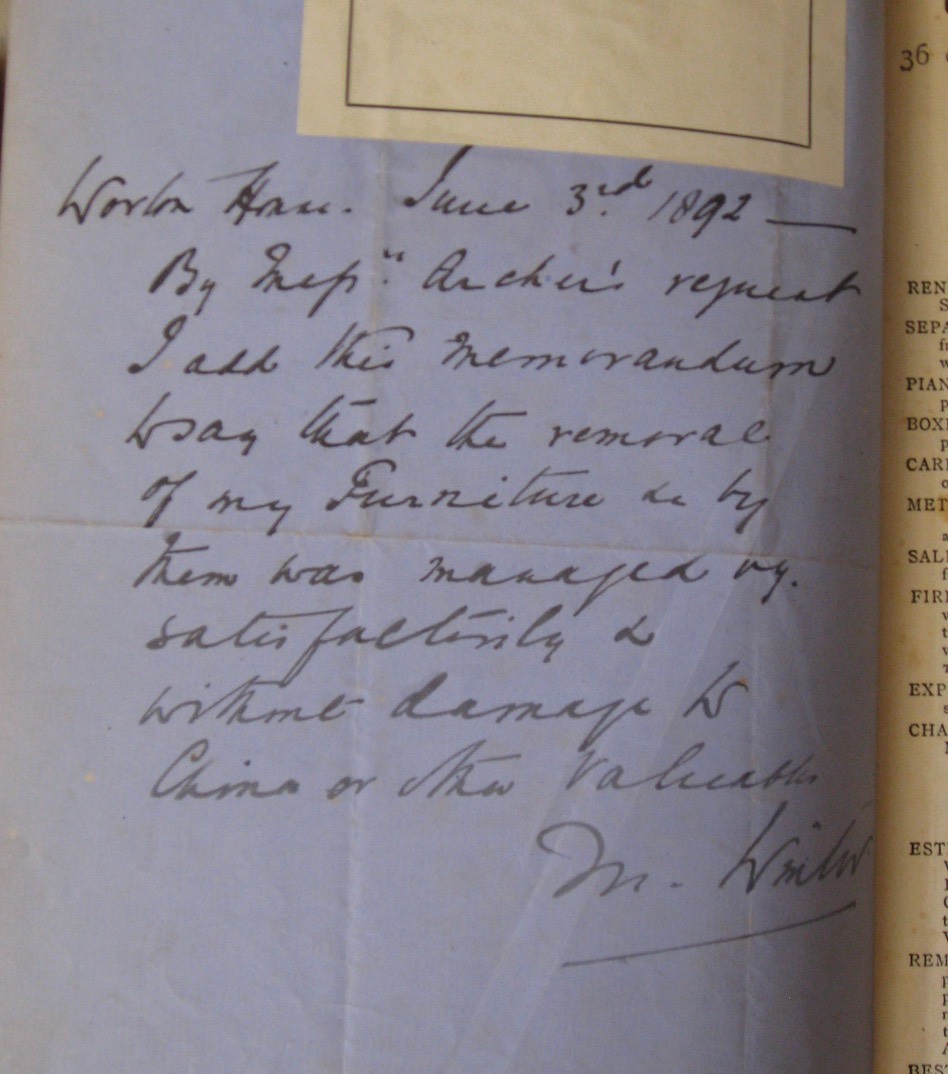 Worton House. June 3rd. 1892 —
By Messrs. Archer's request
I add this Memorandum
to say that the removal
of my Furniture &c by
them was managed vy.
satisfactorily &
without damage to
China or other Valuables
M.
36
REN
S
SEPA
fr
w
PIAN
p
BOXE
p
CARE
c
MET
a
SAL
f
FIRE
v
t
v
EXP
s
CHA
EST
REM
BES